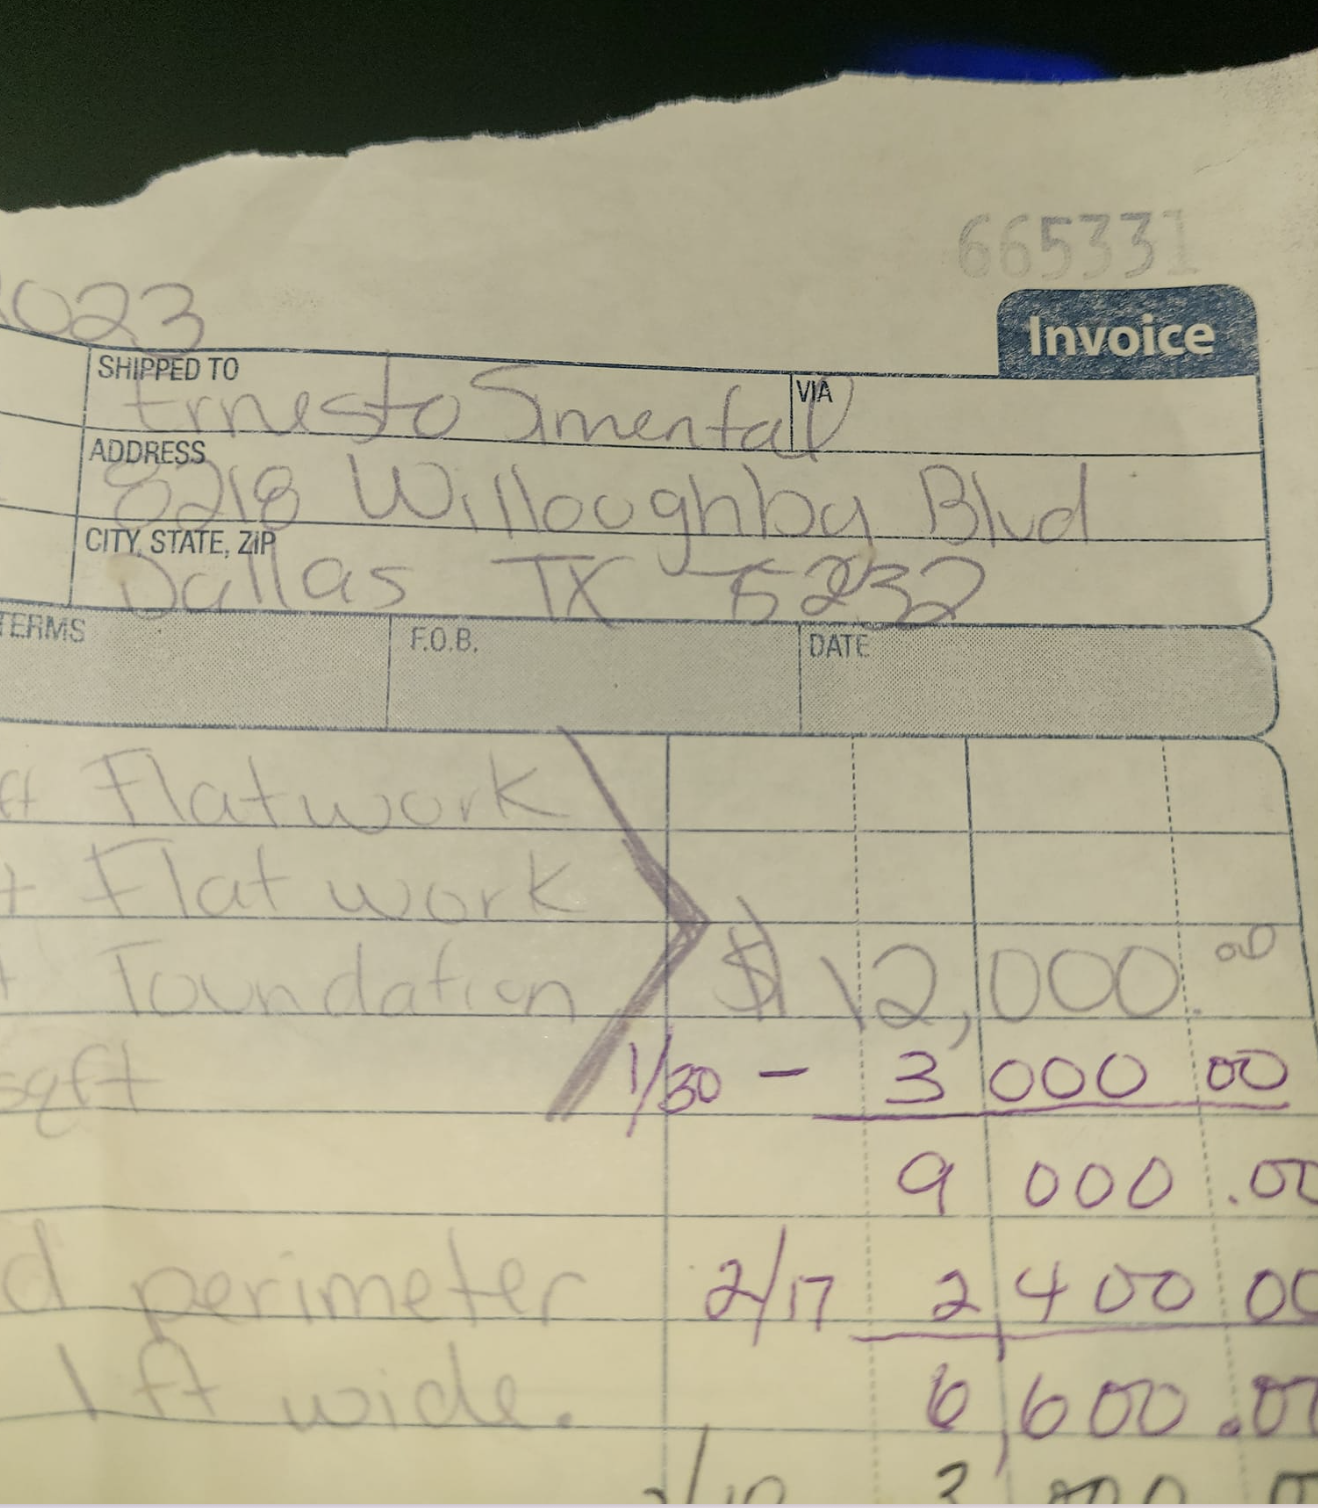 665331
Invoice
2023
SHIPPED TO
Ernesto Simental
VIA
ADDRESS
8218 Willoughby Blvd
CITY, STATE, ZIP
Dallas TX 75232
TERMS F.O.B. DATE
ft Flatwork
Flat work
Foundation $12,000.00
sqft 1/30 - 3 000 00
9 000.00
perimeter 2/17 2 400 00
1 ft wide. 6,600.00